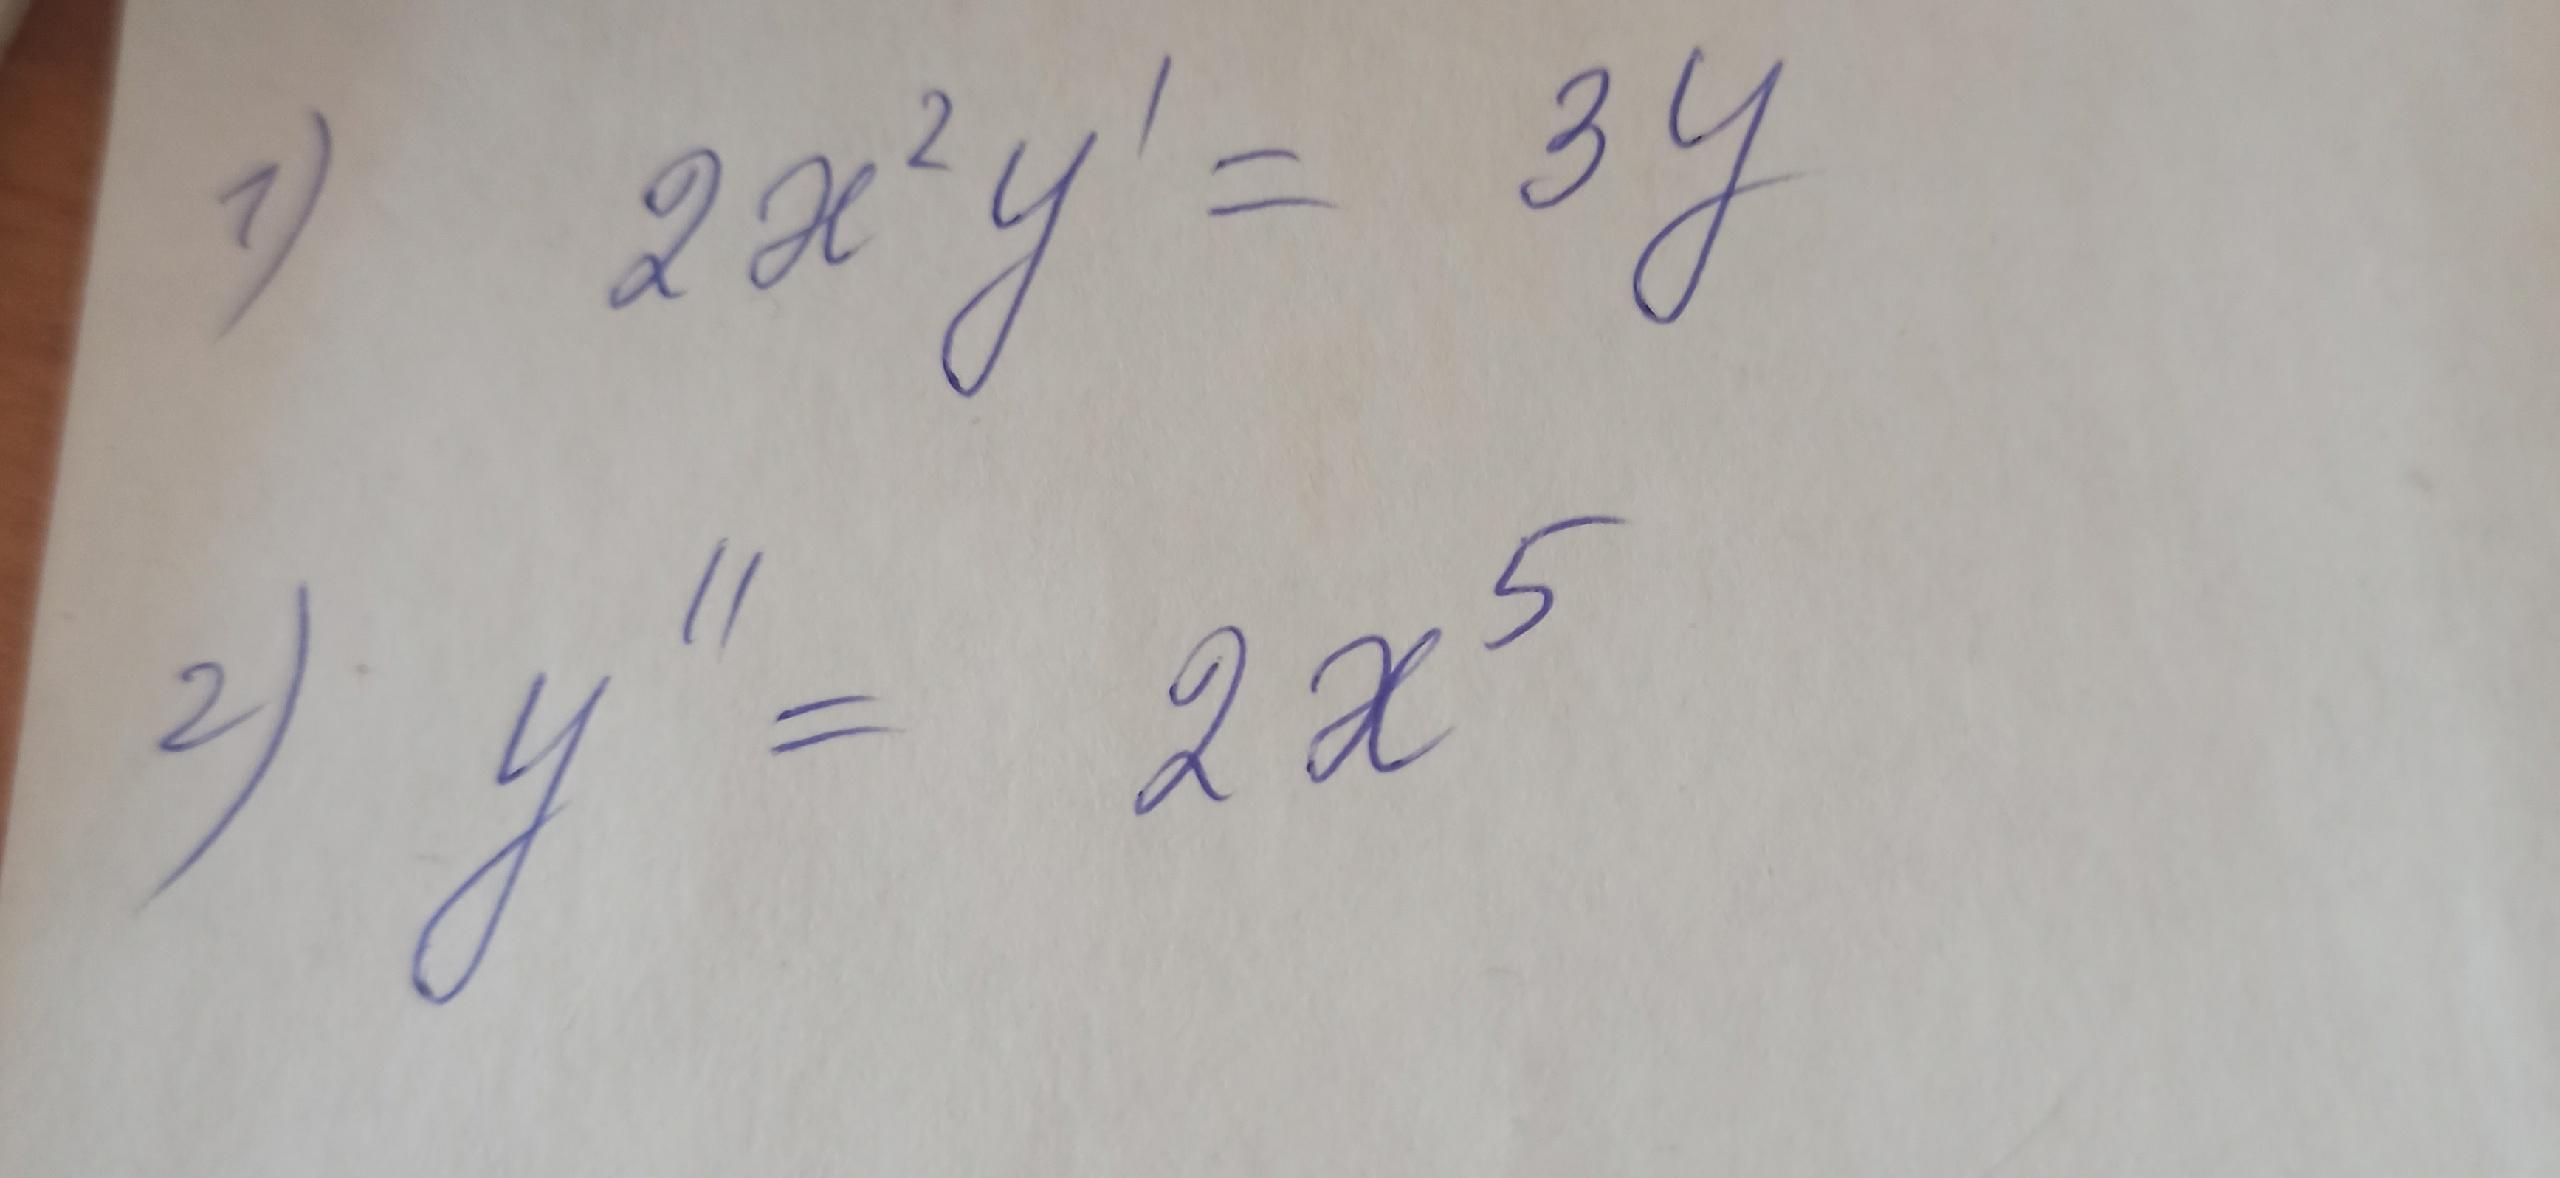 1) 2x²y' = 3y
2) y'' = 2x⁵